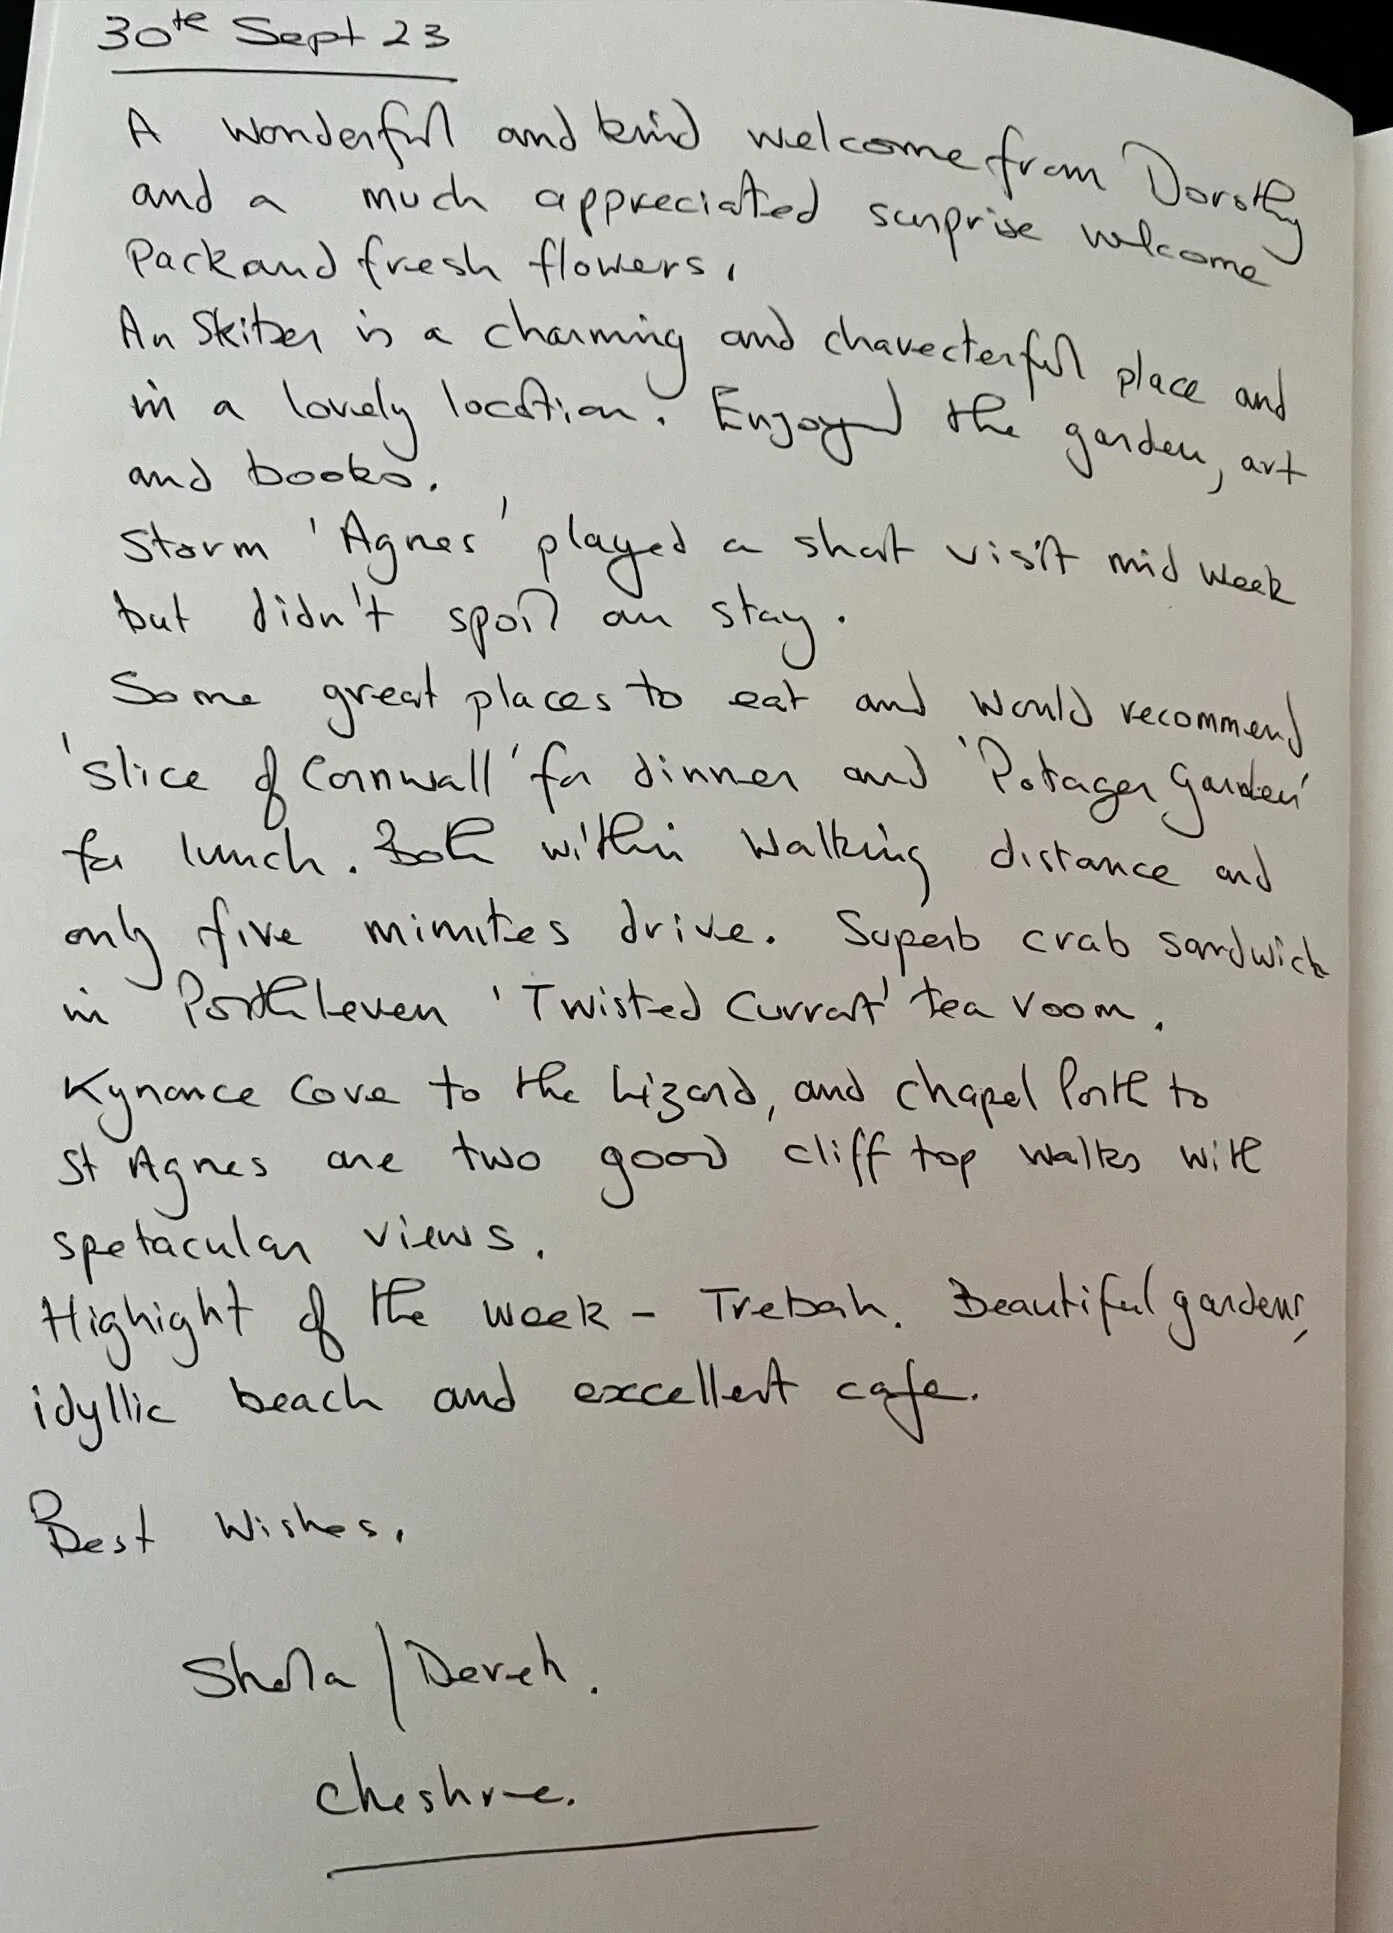 30th Sept 23
A wonderful and kind welcome from Dorothy
and a much appreciated surprise welcome
Pack and fresh flowers.
An Skiber is a charming and characterful place and
in a lovely location. Enjoyed the garden, art
and books.
Storm 'Agnes' played a short visit mid week
but didn't spoil our stay.
Some great places to eat and would recommend
'Slice of Cornwall' for dinner and 'Potager Garden'
for lunch. Both within walking distance and
only five minutes drive. Superb crab sandwich
in Porthleven 'Twisted Currant' tea room.
Kynance Cove to the Lizard, and Chapel Porth to
St Agnes are two good cliff top walks with
spetacular views.
Highight of the week - Trebah. Beautiful gardens,
idyllic beach and excellent cafe.
Best Wishes.
Sheila / Derek.
Cheshire.